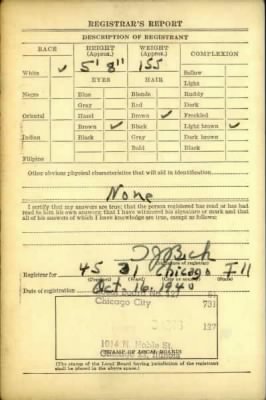 REGISTRAR'S REPORT
DESCRIPTION OF REGISTRANT
RACE HEIGHT (Approx.) WEIGHT (Approx.) COMPLEXION
White ✓ 5' 8" 155 Sallow
EYES HAIR Light
Negro Blue Blonde Ruddy
Gray Red Dark
Oriental Hazel Brown Freckled
Brown ✓ Black Light brown ✓
Indian Black Gray Dark brown
Bald Black
Filipino
Other obvious physical characteristics that will aid in identification
None
I certify that my answers are true; that the person registered has read or has had
read to him his own answers; that I have witnessed his signature or mark and that
all of his answers of which I have knowledge are true, except as follows:
(Signature of registrar)
Registrar for 45 31 Chicago Ill
(Precinct) (Ward) (City or county) (State)
Date of registration Oct. 16, 1940
Chicago City
731
127
1014 N. Noble St.
(STAMP OF LOCAL BOARD)
(The stamp of the Local Board having jurisdiction of the registrant
shall be placed in the above space.)